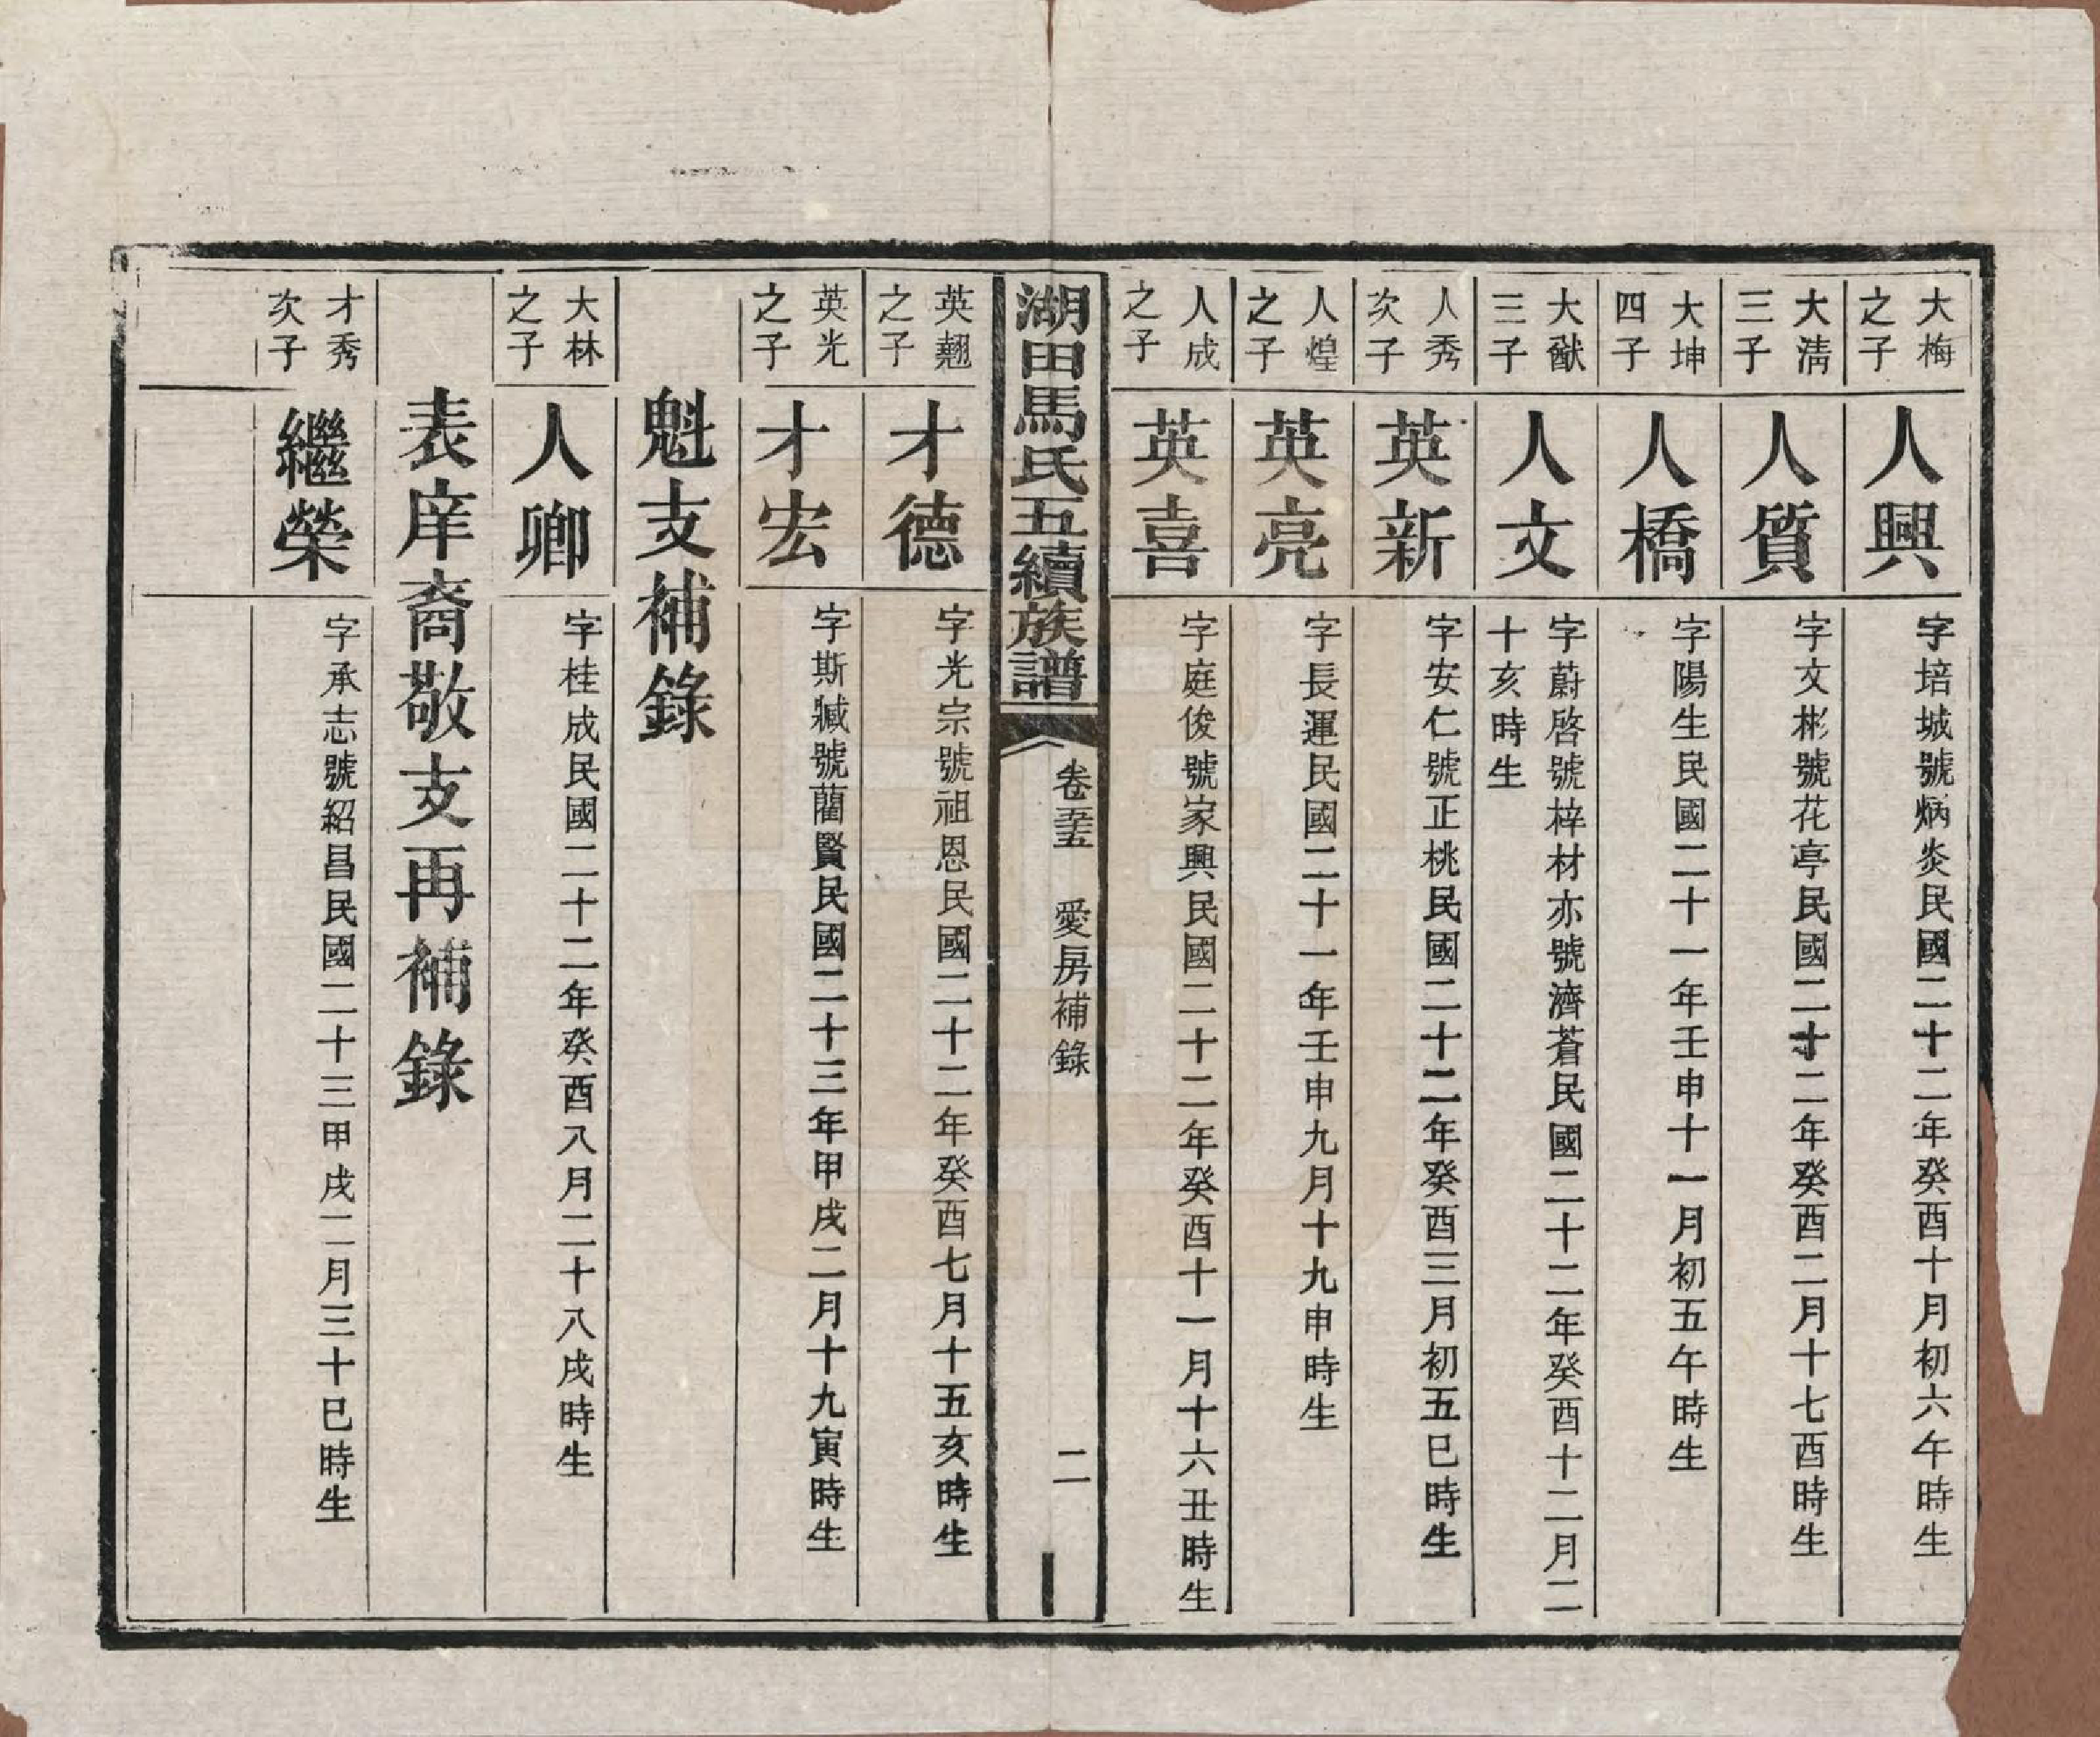 大梅
之子
人興
字培城號炳炎民國二十二年癸酉十月初六午時生
大淸
三子
人質
字文彬號花亭民國二十二年癸酉二月十七酉時生
大坤
四子
人橋
字陽生民國二十一年壬申十一月初五午時生
大猷
三子
人文
字蔚啓號梓材亦號濟蒼民國二十二年癸酉十二月二
十亥時生
人秀
次子
英新
字安仁號正桃民國二十二年癸酉三月初五巳時生
人煌
之子
英亮
字長運民國二十一年壬申九月十九申時生
人成
之子
英喜
字庭俊號家興民國二十二年癸酉十一月十六丑時生
湖田馬氏五續族譜
卷五 愛房補錄
二
英翹
之子
才德
字光宗號祖恩民國二十二年癸酉七月十五亥時生
英光
之子
才宏
字斯臧號藺賢民國二十三年甲戌二月十九寅時生
魁支補錄
大林
之子
人卿
字桂成民國二十二年癸酉八月二十八戌時生
表庠裔敬支再補錄
才秀
次子
繼榮
字承志號紹昌民國二十三甲戌二月三十巳時生